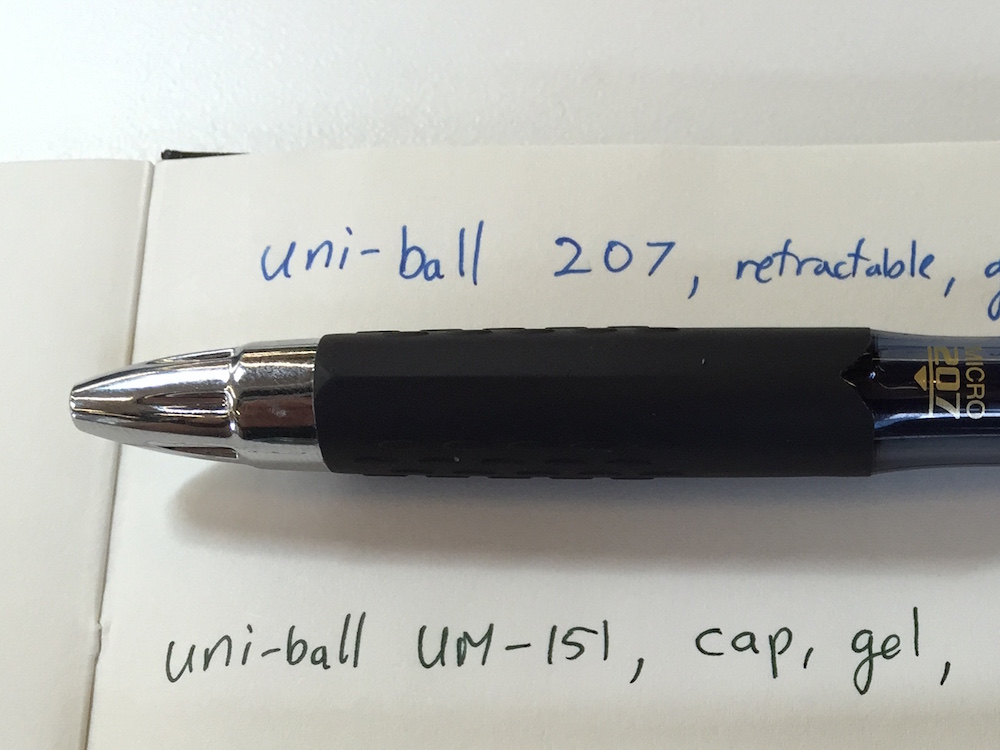 uni-ball 207, retractable,
MICRO
207
uni-ball UM-151, cap, gel,